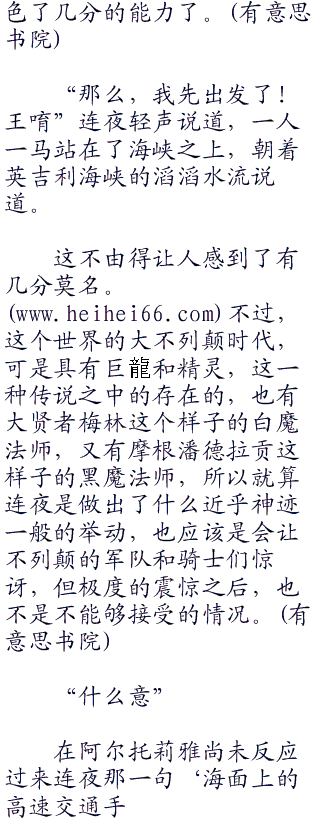 色了几分的能力了。(有意思
书院)
“那么，我先出发了！
王唷”连夜轻声说道，一人
一马站在了海峡之上，朝着
英吉利海峡的滔滔水流说
道。
这不由得让人感到了有
几分莫名。
(www.heihei66.com)不过，
这个世界的大不列颠时代，
可是具有巨龍和精灵，这一
种传说之中的存在的，也有
大贤者梅林这个样子的白魔
法师，又有摩根潘德拉贡这
样子的黑魔法师，所以就算
连夜是做出了什么近乎神迹
一般的举动，也应该是会让
不列颠的军队和骑士们惊
讶，但极度的震惊之后，也
不是不能够接受的情况。(有
意思书院)
“什么意”
在阿尔托莉雅尚未反应
过来连夜那一句‘海面上的
高速交通手